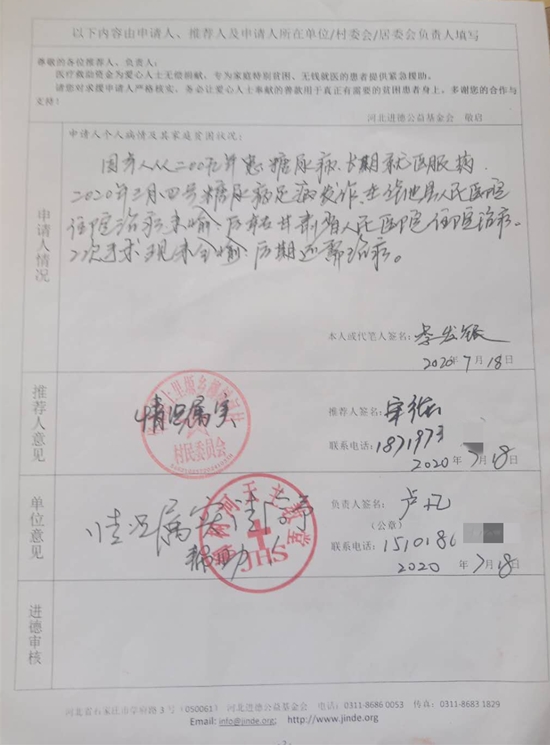 以下内容由申请人、推荐人及申请人所在单位/村委会/居委会负责人填写
尊敬的各位推荐人、负责人：
医疗救助资金为爱心人士无偿捐献，专为家庭特别贫困、无钱就医的患者提供紧急援助。
请您对求援申请人严格核实，务必让爱心人士奉献的善款用于真正有需要的贫困患者身上。多谢您的合作与
支持！
河北进德公益基金会 敬启
申请人情况
申请人个人病情及其家庭贫困状况：
因本人从二00九年患糖尿病.长期就医服药.
2020年三月四号糖尿病足病发作.在华池县人民医院
住院治疗未愈.后转甘肃省人民医院住院治疗.
二次手术现未全愈.后期还需治疗。
本人或代笔人签名：李发银
2020年7月18日
推荐人意见
情况属实
村民委员会
推荐人签名：
联系电话：1871973
2020年7月18日
单位意见
情况属实请给予
辅助
天主教堂
JHS
负责人签名：
（公章）
联系电话：1510186
2020年7月18日
进德审核
河北省石家庄市学府路3号（050061） 河北进德公益基金会 电话：0311-8686 0053 传真：0311-8683 1829
Email: info@jinde.org; http://www.jinde.org
- 2 -